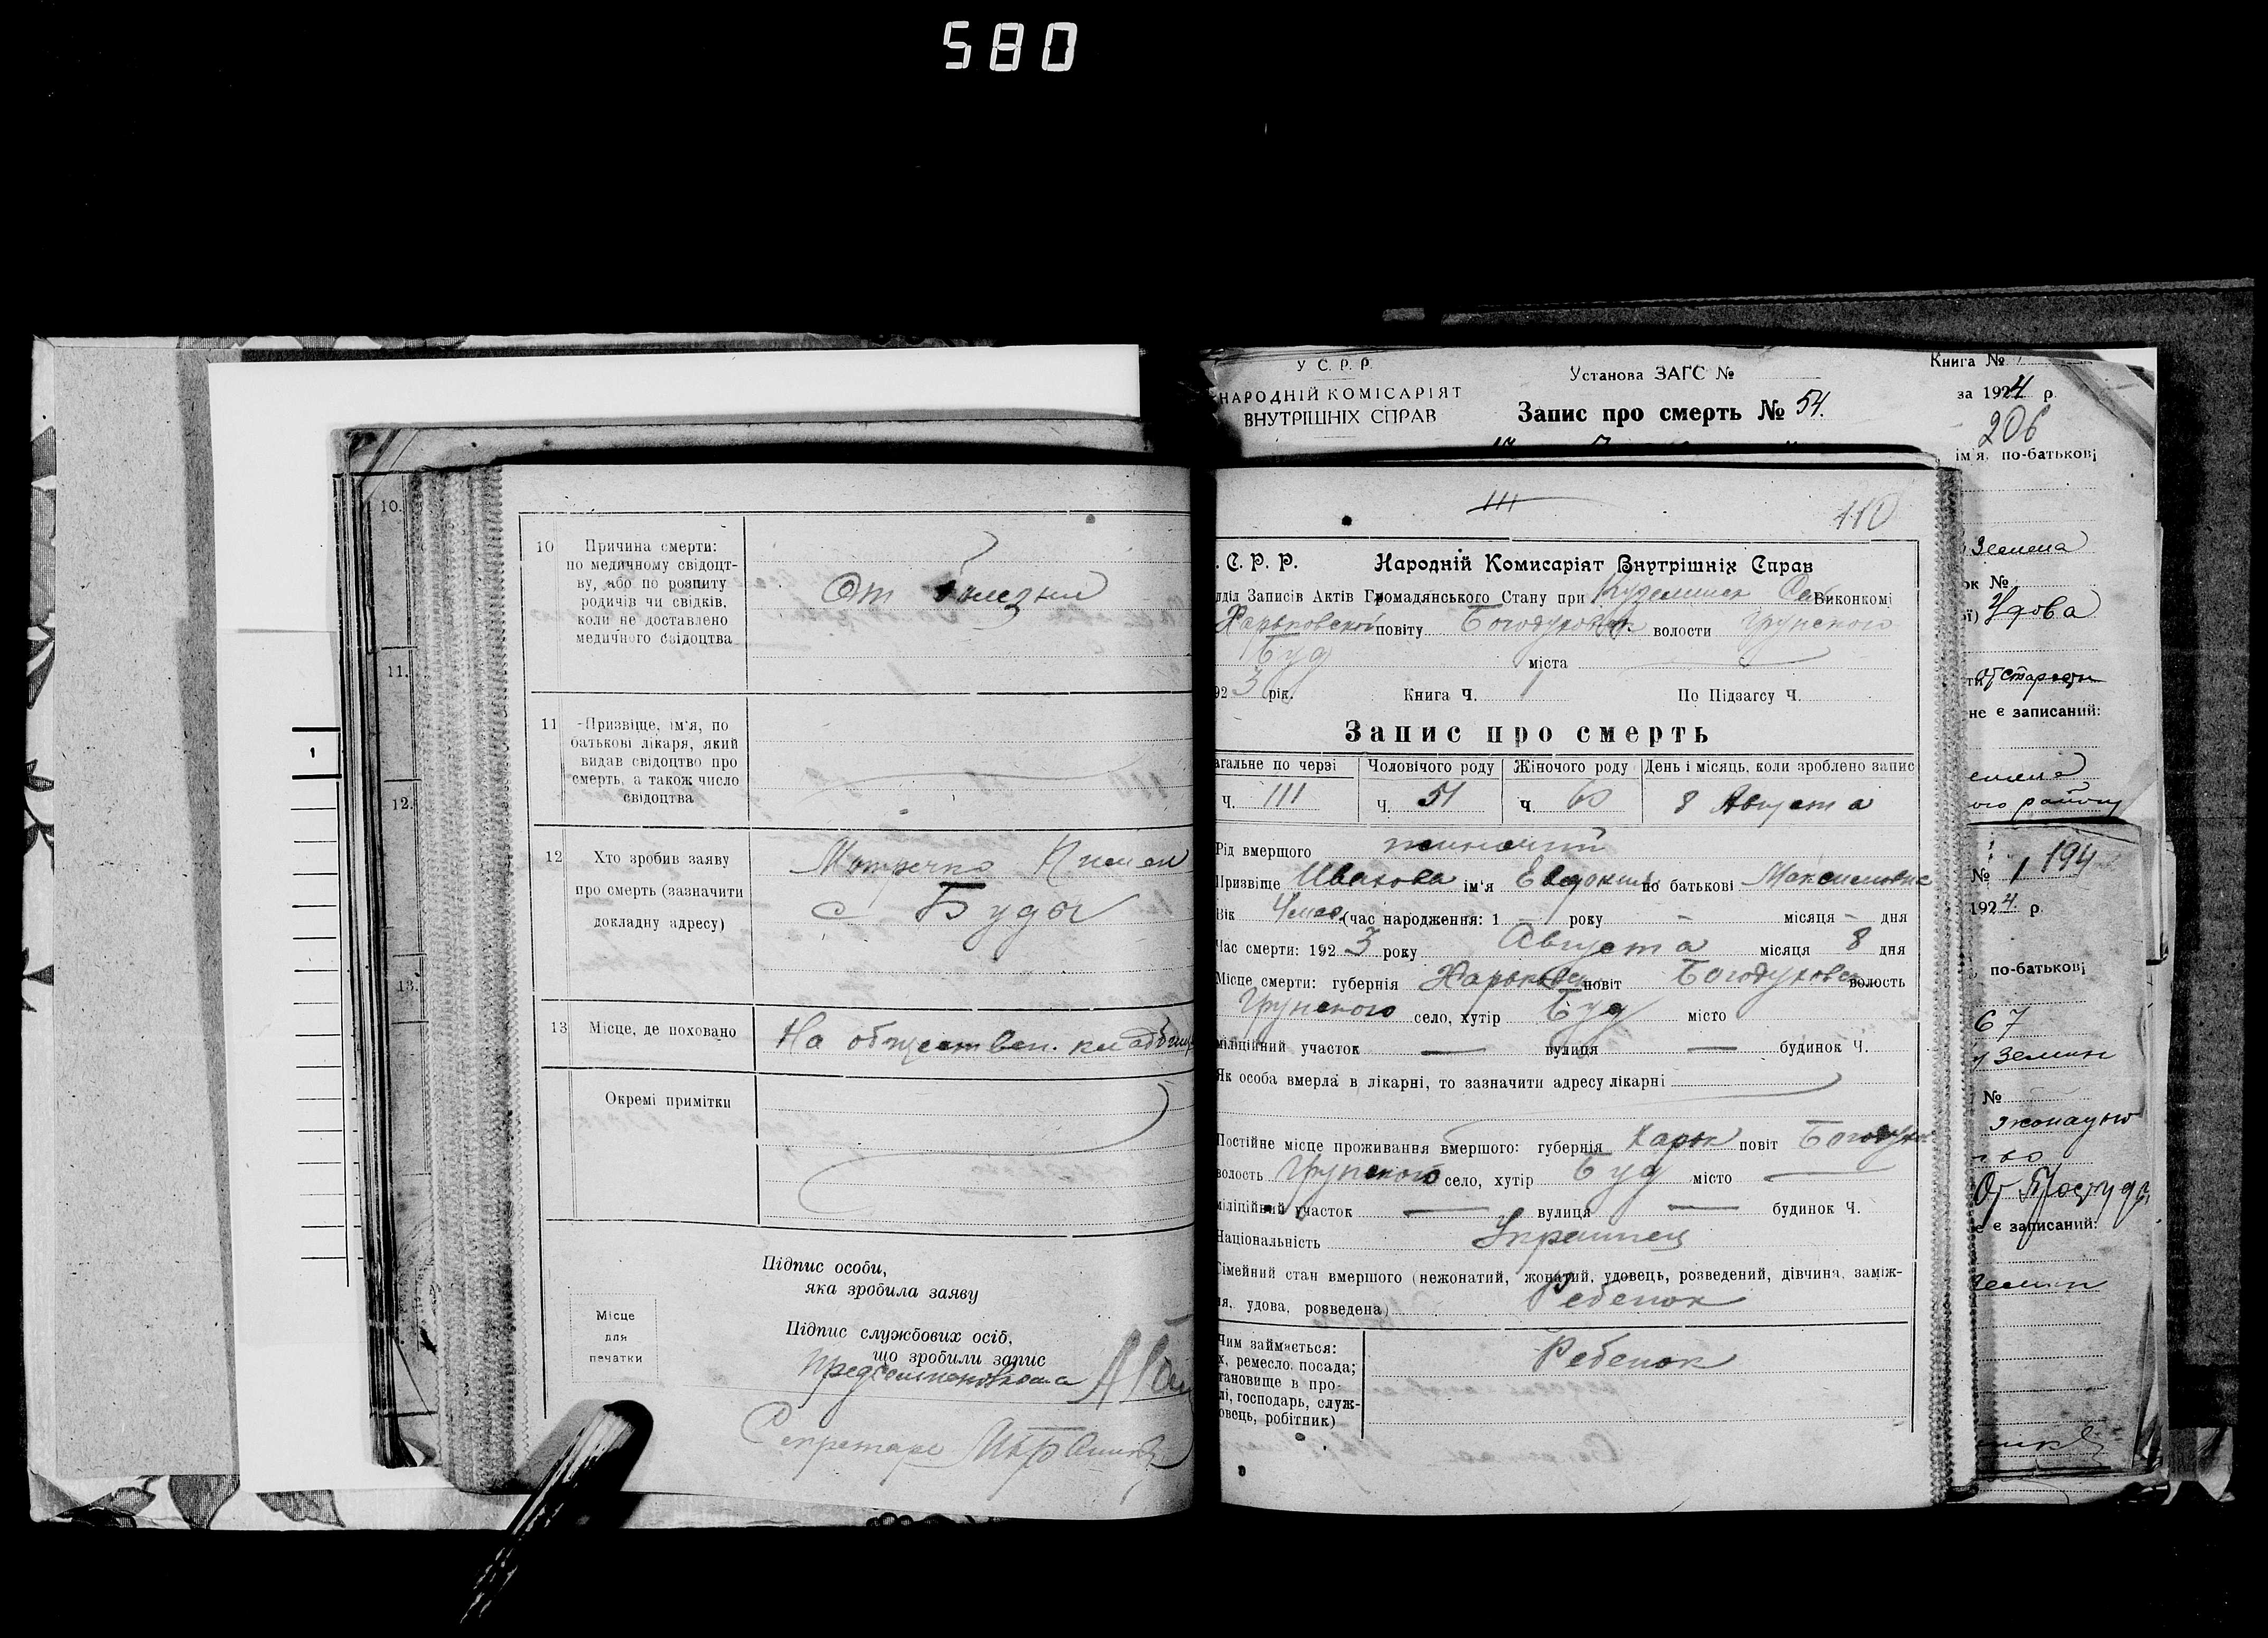 580
10.
11.
12.
13.
1
10 Причина смерти:
по медичному свідоцт-
ву, або по розпиту
родичів чи свідків,
коли не доставлено
медичного свідоцтва
От болезни
11 Призвіще, ім'я, по
батькові лікаря, який
видав свідоцтво про
смерть, а також число
свідоцтва
12 Хто зробив заяву
про смерть (зазначити
докладну адресу)
с Буды
13 Місце, де поховано
На обществен. кладбищ
Окремі примітки
Підпис особи,
яка зробила заяву
Місце
для
печатки
Підпис службових осіб,
що зробили запис
Секретарь
У С. Р. Р.
НАРОДНІЙ КОМІСАРІЯТ
ВНУТРІШНІХ СПРАВ
Установа ЗАГС №
Запис про смерть № 54.
Книга №
за 1924 р.
206
ім'я, по-батькові
111
110
. С. Р. Р. Народній Комисаріят Внутрішніх Справ
дділ Записів Актів Громадянського Стану при Виконкомі
Харьковской повіту Богодуховск волости Грунского
Буд міста
92 3 рік. Книга Ч. 1 По Підзагсу Ч.
Запис про смерть
агальне по черзі Чоловічого роду Жіночого роду День і місяць, коли зроблено запис
Ч. 111 Ч. 51 Ч. 60 8 Августа
Рід вмершого жиночий
Призвіще Ивахова ім'я Евдокия по батькові Максимовна
Вік 4 мес. (час народження: 1 – року – місяця – дня
Час смерти: 192 3 року Августа місяця 8 дня
Місце смерти: губернія Харьковск повіт Богодуховск волость
Грунского село, хутір Буд місто
міліційний участок — вулиця — будинок Ч.
Як особа вмерла в лікарні, то зазначити адресу лікарні
Постійне місце проживання вмершого: губернія Харьк повіт Богодух
волость Грунского село, хутір Буд місто —
міліційний участок — вулиця — будинок Ч.
Національність Украинец
Сімейний стан вмершого (нежонатий, жонатий, удовець, розведений, дівчина, заміж-
ня, удова, розведена) Ребенок
Чим займається:
х, ремесло, посада;
тановище в про-
лі, господарь, служ-
овець, робітник)
Ребенок
ок №
Удова
не є записаний:
№ 1 194
1924 р.
по-батькові
67
№
е є записаний: